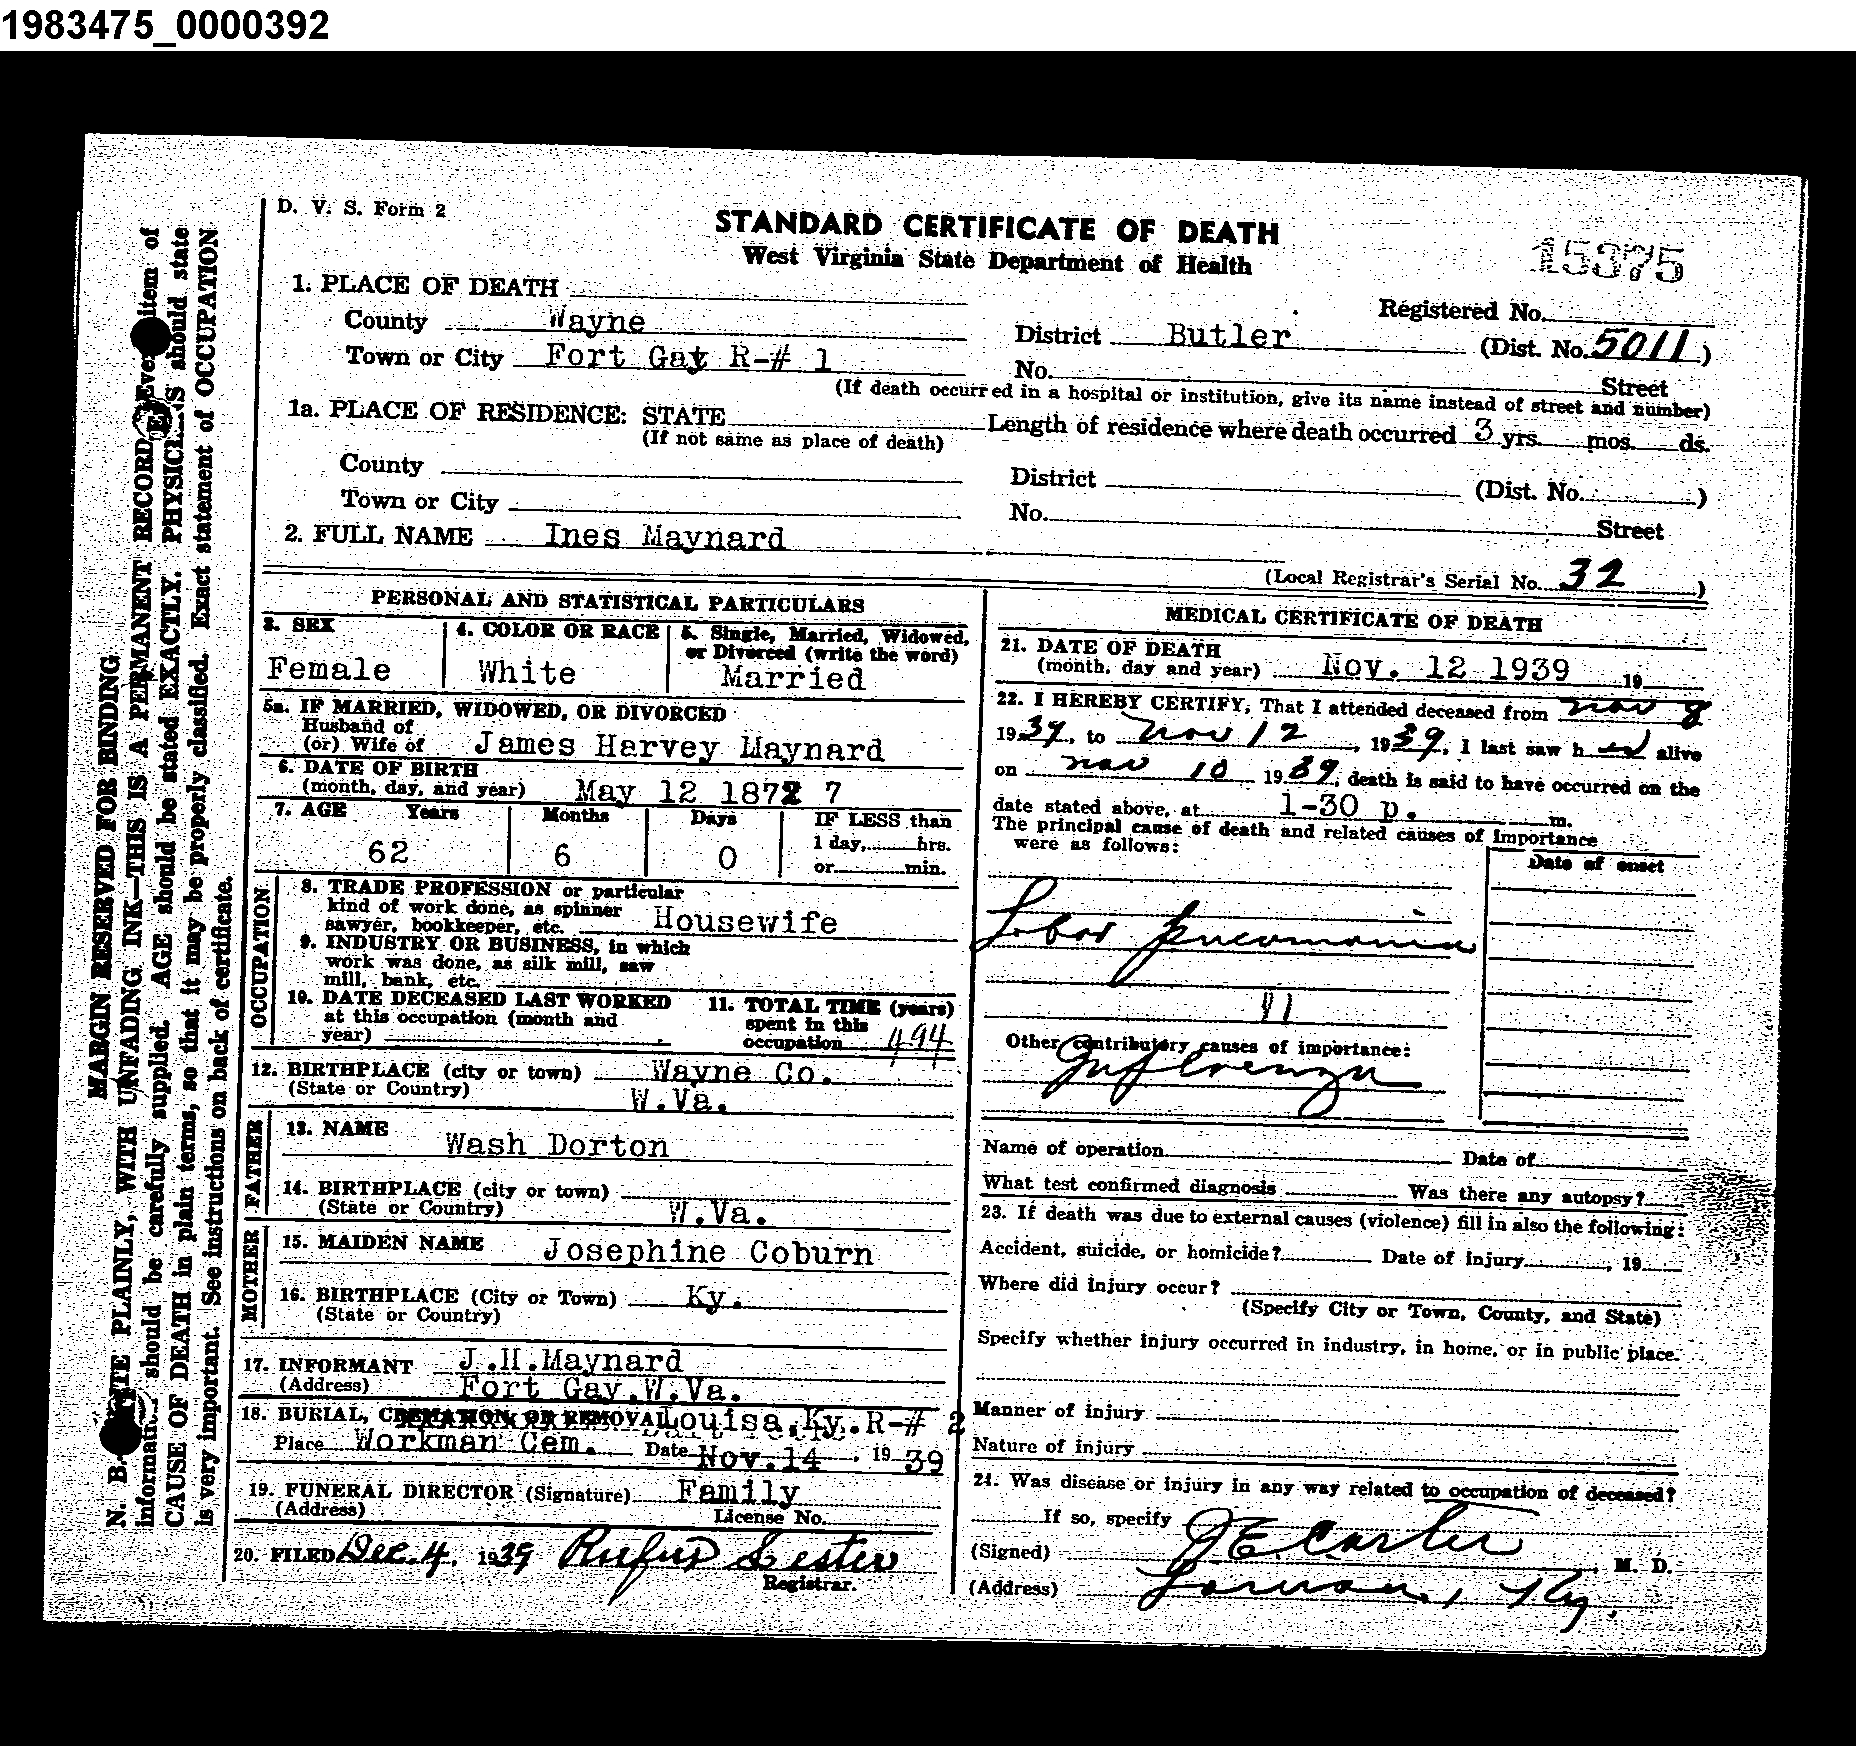 1983475_0000392
D. V. S. Form 2
STANDARD CERTIFICATE OF DEATH
West Virginia State Department of Health
15375
1. PLACE OF DEATH
Registered No.
County Wayne
District Butler (Dist. No. 5011)
Town or City Fort Gay R-# 1
No. Street
(If death occurred in a hospital or institution, give its name instead of street and number)
1a. PLACE OF RESIDENCE: STATE
(If not same as place of death)
Length of residence where death occurred 3 yrs. mos. ds.
County
District (Dist. No. )
Town or City
No. Street
2. FULL NAME Ines Maynard
(Local Registrar's Serial No. 32 )
PERSONAL AND STATISTICAL PARTICULARS
3. SEX
Female
4. COLOR OR RACE
White
5. Single, Married, Widowed,
or Divorced (write the word)
Married
5a. IF MARRIED, WIDOWED, OR DIVORCED
Husband of
(or) Wife of James Harvey Maynard
6. DATE OF BIRTH
(month, day, and year) May 12 187 7
7. AGE Years Months Days IF LESS than
1 day, hrs.
or min.
62 6 0
OCCUPATION
8. TRADE PROFESSION or particular
kind of work done, as spinner
sawyer, bookkeeper, etc. Housewife
9. INDUSTRY OR BUSINESS, in which
work was done, as silk mill, saw
mill, bank, etc.
10. DATE DECEASED LAST WORKED
at this occupation (month and
year)
11. TOTAL TIME (years)
spent in this
occupation 494
12. BIRTHPLACE (city or town) Wayne Co.
(State or Country) W.Va.
FATHER
13. NAME Wash Dorton
14. BIRTHPLACE (city or town)
(State or Country) W.Va.
MOTHER
15. MAIDEN NAME Josephine Coburn
16. BIRTHPLACE (City or Town) Ky.
(State or Country)
17. INFORMANT J.H.Maynard
(Address) Fort Gay.W.Va.
18. BURIAL, CREMATION OR REMOVAL Louisa.Ky.R-# 2
Place Workman Cem. Date Nov.14 , 19 39
19. FUNERAL DIRECTOR (Signature) Family
(Address) License No.
20. FILED Dec. 4, 1939 Rufus Lester
Registrar.
MEDICAL CERTIFICATE OF DEATH
21. DATE OF DEATH
(month, day and year) Nov. 12 1939 19
22. I HEREBY CERTIFY, That I attended deceased from Nov 8
1939, to Nov 12, 1939, I last saw h er alive
on Nov 10 1939, death is said to have occurred on the
date stated above, at 1-30 p. m.
The principal cause of death and related causes of importance
were as follows:
Date of onset
Lobar Pneumonia
Other contributory causes of importance:
Influenza
Name of operation Date of
What test confirmed diagnosis Was there any autopsy?
23. If death was due to external causes (violence) fill in also the following:
Accident, suicide, or homicide? Date of injury , 19
Where did injury occur?
(Specify City or Town, County, and State)
Specify whether injury occurred in industry, in home, or in public place.
Manner of injury
Nature of injury
24. Was disease or injury in any way related to occupation of deceased?
If so, specify
(Signed) J E Carter , M. D.
(Address) Ky.
MARGIN RESERVED FOR BINDING
N. B. PLAINLY, WITH UNFADING INK—THIS IS A PERMANENT RECORD item of
should be carefully supplied. AGE should be stated EXACTLY. should state
CAUSE OF DEATH in plain terms, so that it may be properly classified. Exact statement of OCCUPATION
is very important. See instructions on back of certificate.